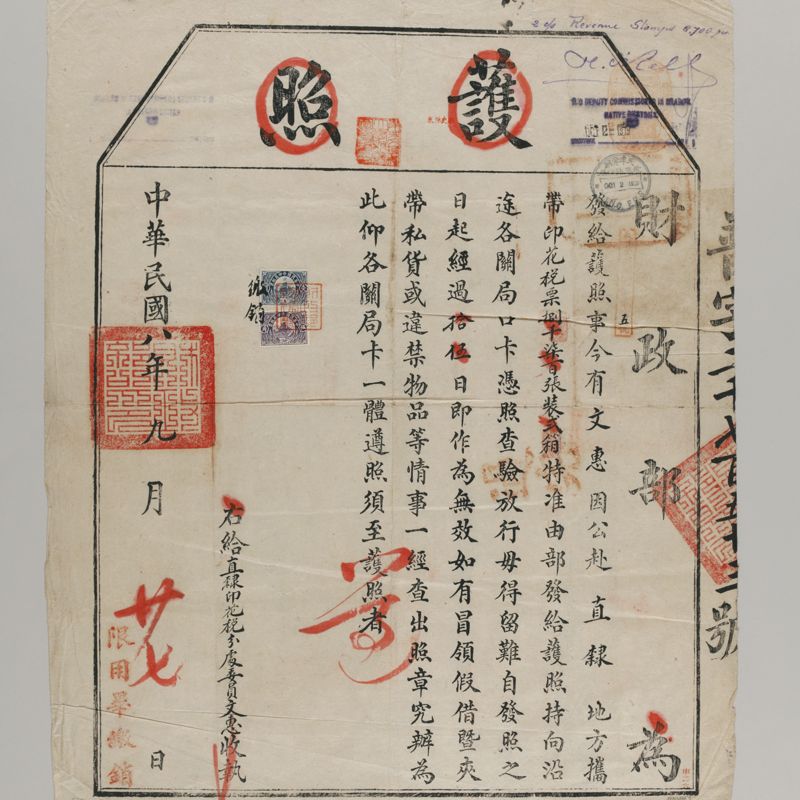 護照
財政部 為
發給護照事今有文惠因公赴直隸地方攜
帶印花税票捌千柒百張装弍箱特准由部發給護照持向沿
途各關局口卡憑照查驗放行毋得留難自發照之
日起經過拾伍日即作為無效如有冒領假借暨夾
帶私貨或違禁物品等情事一經查出照章究辦為
此仰各關局卡一體遵照須至護照者
繳銷
右給直隸印花稅分處委員文惠收執
中華民國八年九月廿七日
限用畢繳銷
2 c/s Revenue Stamps 8,700 pcs
DEPUTY COMMISSIONER IN CHARGE
NATIVE CUSTOMS